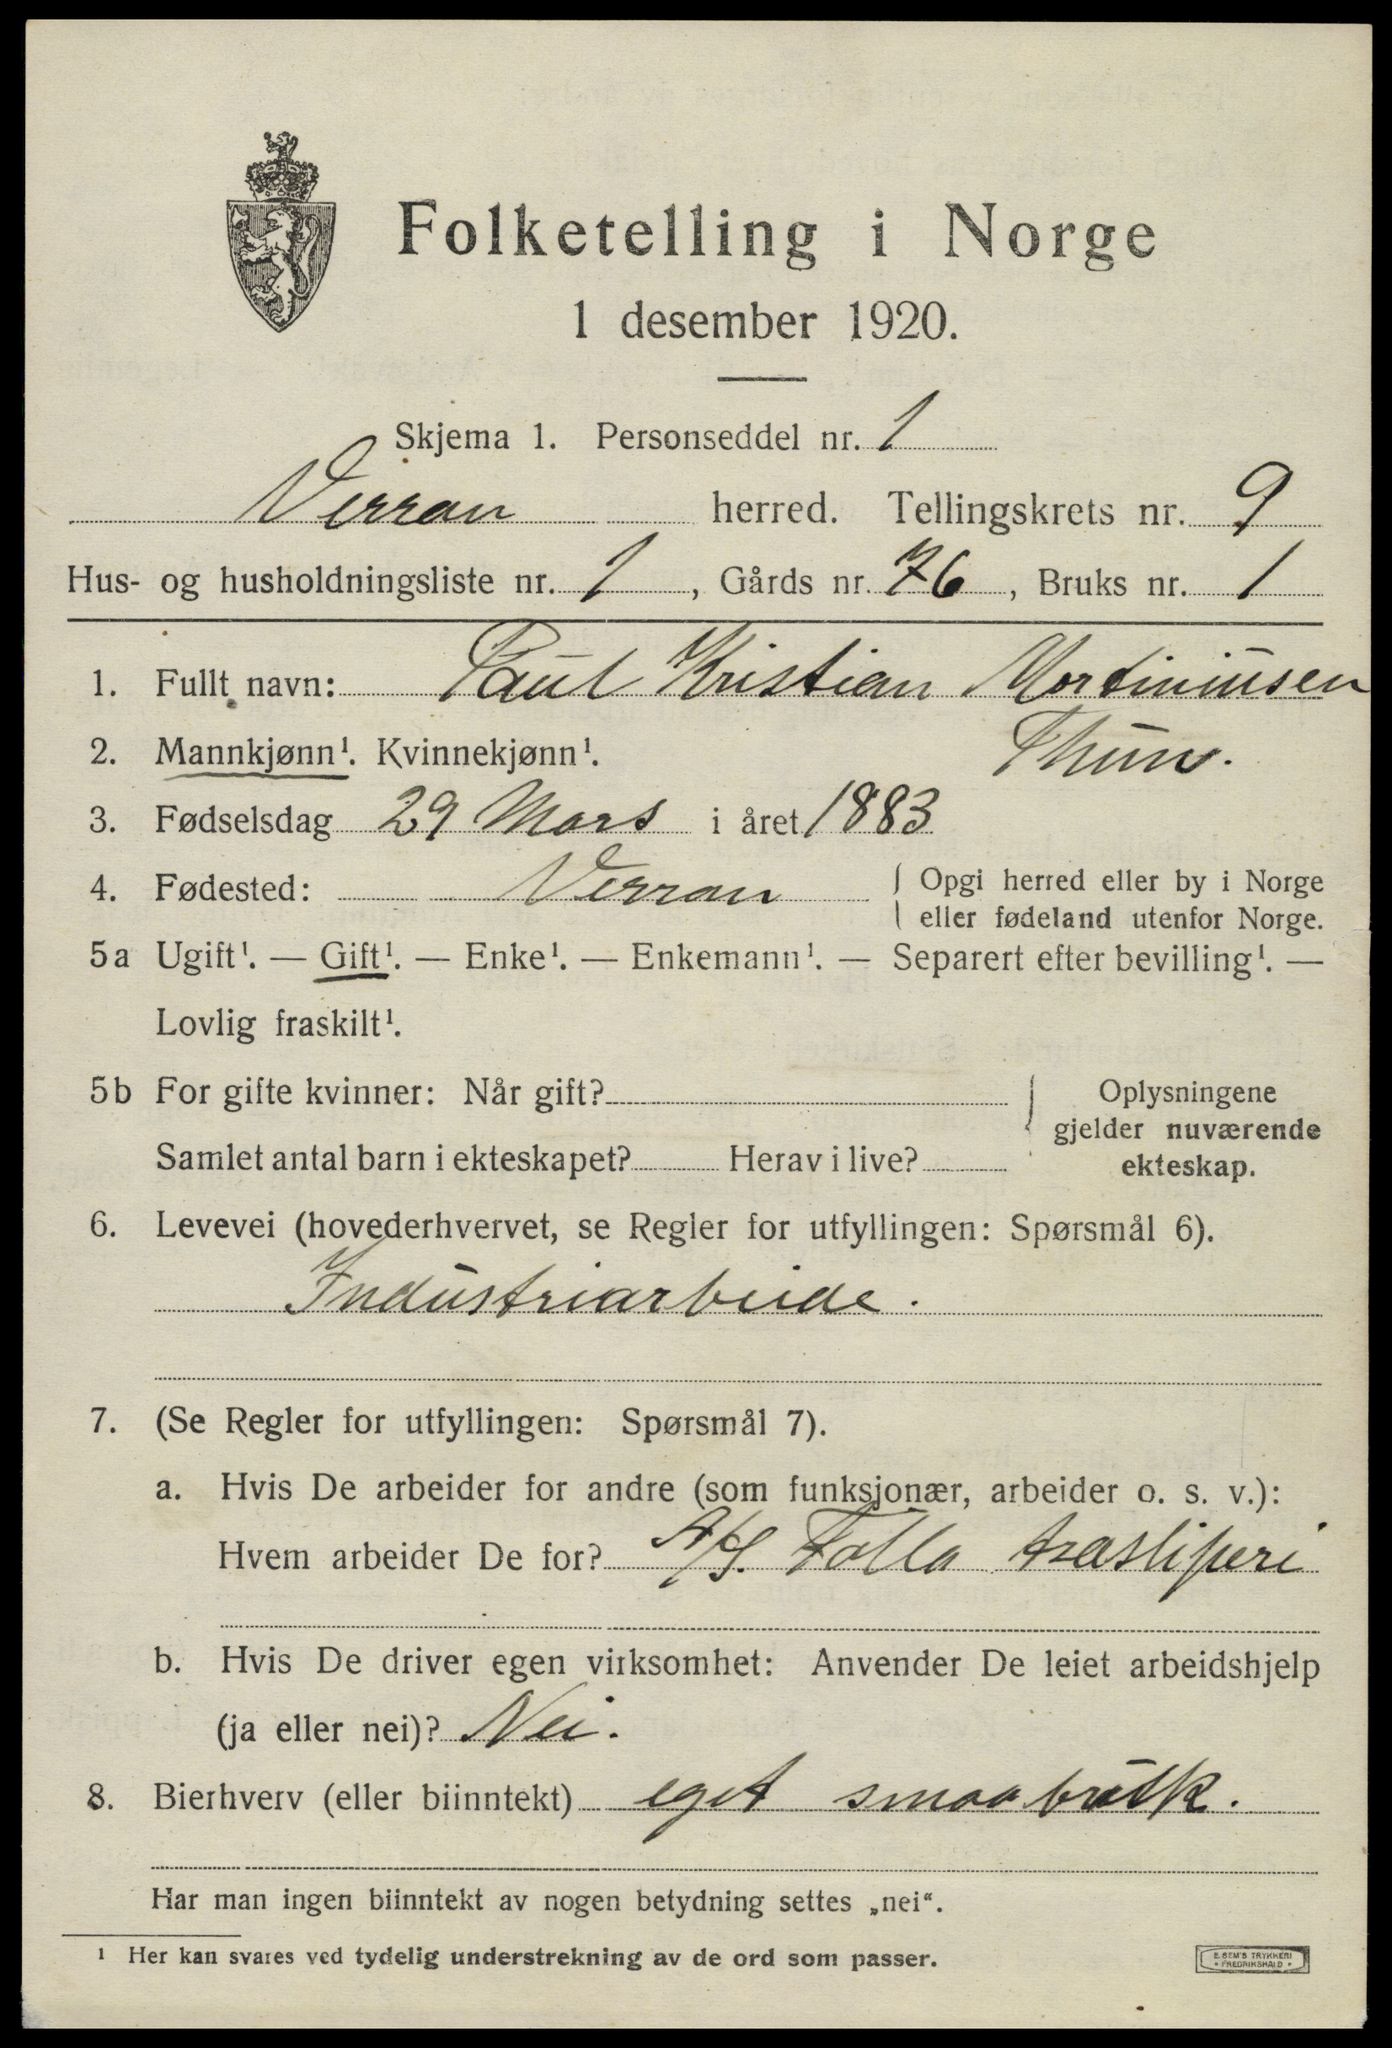 Folketelling i Norge
1 desember 1920.
Skjema 1. Personseddel nr. 1
Verran herred. Tellingskrets nr. 9
Hus- og husholdningsliste nr. 1, Gårds nr. 76, Bruks nr. 1
1. Fullt navn: Paul Kristian Mortiniusen
Thun.
2. Mannkjønn¹. Kvinnekjønn¹.
3. Fødselsdag 29 Mars i året 1883
4. Fødested: Verran { Opgi herred eller by i Norge
eller fødeland utenfor Norge.
5a Ugift¹. — Gift¹. — Enke¹. — Enkemann¹. — Separert efter bevilling¹. —
Lovlig fraskilt¹.
5b For gifte kvinner: Når gift? { Oplysningene
gjelder nuværende
Samlet antal barn i ekteskapet? Herav i live? ekteskap.
6. Levevei (hovederhvervet, se Regler for utfyllingen: Spørsmål 6).
Industriarbeide.
7. (Se Regler for utfyllingen: Spørsmål 7).
a. Hvis De arbeider for andre (som funksjonær, arbeider o. s. v.):
Hvem arbeider De for? A/S. Folla træsliperi
b. Hvis De driver egen virksomhet: Anvender De leiet arbeidshjelp
(ja eller nei)? Nei.
8. Bierhverv (eller biinntekt) eget smaabruk.
Har man ingen biinntekt av nogen betydning settes „nei“.
¹ Her kan svares ved tydelig understrekning av de ord som passer.
E. SEM'S TRYKKERI
• FREDRIKSHALD •